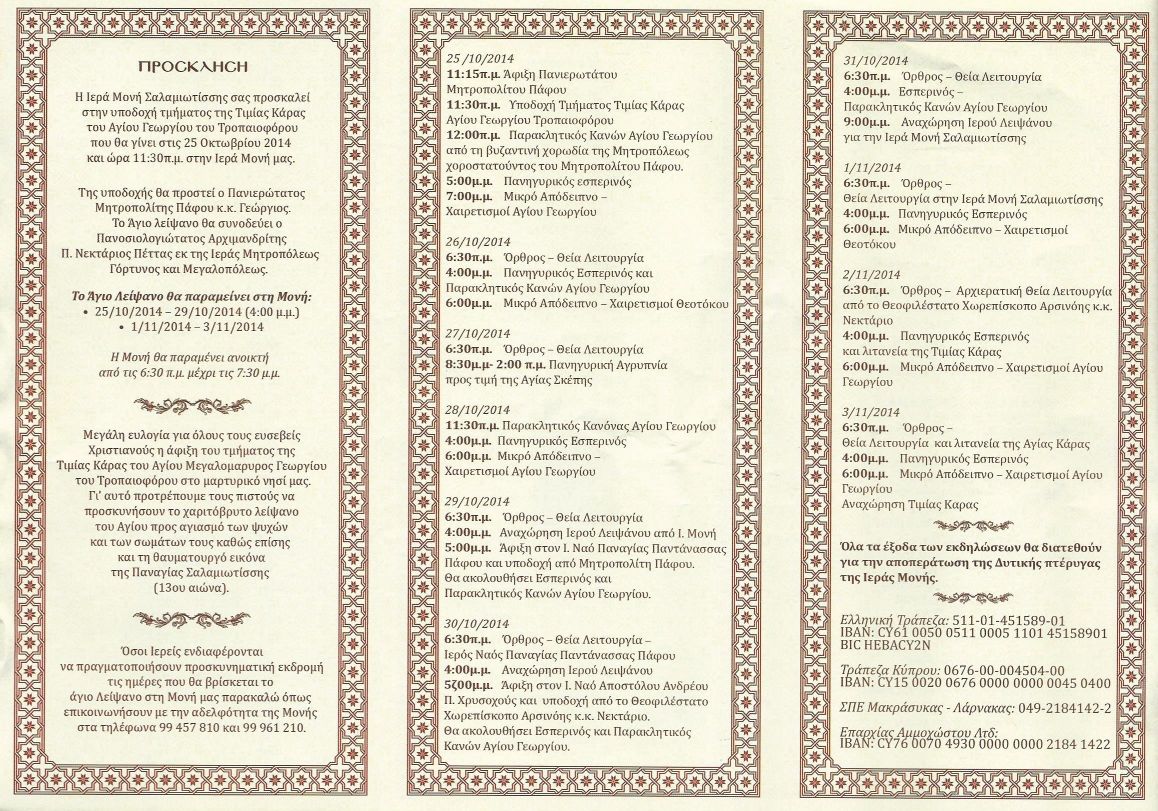 ΠΡΟΣΚΛΗΣΗ
Η Ιερά Μονή Σαλαμιωτίσσης σας προσκαλεί
στην υποδοχή τμήματος της Τιμίας Κάρας
του Αγίου Γεωργίου του Τροπαιοφόρου
που θα γίνει στις 25 Οκτωβρίου 2014
και ώρα 11:30π.μ. στην Ιερά Μονή μας.
Της υποδοχής θα προστεί ο Πανιερώτατος
Μητροπολίτης Πάφου κ.κ. Γεώργιος.
Το Άγιο λείψανο θα συνοδεύει ο
Πανοσιολογιώτατος Αρχιμανδρίτης
Π. Νεκτάριος Πέττας εκ της Ιεράς Μητροπόλεως
Γόρτυνος και Μεγαλοπόλεως.
Το Άγιο Λείψανο θα παραμείνει στη Μονή:
• 25/10/2014 – 29/10/2014 (4:00 μ.μ.)
• 1/11/2014 – 3/11/2014
Η Μονή θα παραμένει ανοικτή
από τις 6:30 π.μ. μέχρι τις 7:30 μ.μ.
Μεγάλη ευλογία για όλους τους ευσεβείς
Χριστιανούς η άφιξη του τμήματος της
Τιμίας Κάρας του Αγίου Μεγαλομαρυρος Γεωργίου
του Τροπαιοφόρου στο μαρτυρικό νησί μας.
Γι' αυτό προτρέπουμε τους πιστούς να
προσκυνήσουν το χαριτόβρυτο λείψανο
του Αγίου προς αγιασμό των ψυχών
και των σωμάτων τους καθώς επίσης
και τη θαυματουργό εικόνα
της Παναγίας Σαλαμιωτίσσης
(13ου αιώνα).
Όσοι Ιερείς ενδιαφέρονται
να πραγματοποιήσουν προσκυνηματική εκδρομή
τις ημέρες που θα βρίσκεται το
άγιο Λείψανο στη Μονή μας παρακαλώ όπως
επικοινωνήσουν με την αδελφότητα της Μονής
στα τηλέφωνα 99 457 810 και 99 961 210.
25 /10/2014
11:15π.μ. Άφιξη Πανιερωτάτου
Μητροπολίτου Πάφου
11:30π.μ. Υποδοχή Τμήματος Τιμίας Κάρας
Αγίου Γεωργίου Τροπαιοφόρου
12:00π.μ. Παρακλητικός Κανών Αγίου Γεωργίου
από τη βυζαντινή χορωδία της Μητροπόλεως
χοροστατούντος του Μητροπολίτου Πάφου.
5:00μ.μ. Πανηγυρικός εσπερινός
7:00μ.μ. Μικρό Απόδειπνο –
Χαιρετισμοί Αγίου Γεωργίου
26/10/2014
6:30π.μ. Όρθρος – Θεία Λειτουργία
4:00μ.μ. Πανηγυρικός Εσπερινός και
Παρακλητικός Κανών Αγίου Γεωργίου
6:00μ.μ. Μικρό Απόδειπνο – Χαιρετισμοί Θεοτόκου
27/10/2014
6:30π.μ. Όρθρος – Θεία Λειτουργία
8:30μ.μ- 2:00 π.μ. Πανηγυρική Αγρυπνία
προς τιμή της Αγίας Σκέπης
28/10/2014
11:30π.μ. Παρακλητικός Κανόνας Αγίου Γεωργίου
4:00μ.μ. Πανηγυρικός Εσπερινός
6:00μ.μ. Μικρό Απόδειπνο –
Χαιρετισμοί Αγίου Γεωργίου
29/10/2014
6:30π.μ. Όρθρος – Θεία Λειτουργία
4:00μ.μ. Αναχώρηση Ιερού Λειψάνου από Ι. Μονή
5:00μ.μ. Άφιξη στον Ι. Ναό Παναγίας Παντάνασσας
Πάφου και υποδοχή από Μητροπολίτη Πάφου.
Θα ακολουθήσει Εσπερινός και
Παρακλητικός Κανών Αγίου Γεωργίου.
30/10/2014
6:30π.μ. Όρθρος – Θεία Λειτουργία –
Ιερός Ναός Παναγίας Παντάνασσας Πάφου
4:00μ.μ. Αναχώρηση Ιερού Λειψάνου
5ζ00μ.μ. Άφιξη στον Ι. Ναό Αποστόλου Ανδρέου
Π. Χρυσοχούς και υποδοχή από το Θεοφιλέστατο
Χωρεπίσκοπο Αρσινόης κ.κ. Νεκτάριο.
Θα ακολουθήσει Εσπερινός και Παρακλητικός
Κανών Αγίου Γεωργίου.
31/10/2014
6:30π.μ. Όρθρος – Θεία Λειτουργία
4:00μ.μ. Εσπερινός –
Παρακλητικός Κανών Αγίου Γεωργίου
9:00μ.μ. Αναχώρηση Ιερού Λειψάνου
για την Ιερά Μονή Σαλαμιωτίσσης
1/11/2014
6:30π.μ. Όρθρος –
Θεία Λειτουργία στην Ιερά Μονή Σαλαμιωτίσσης
4:00μ.μ. Πανηγυρικός Εσπερινός
6:00μ.μ. Μικρό Απόδειπνο – Χαιρετισμοί
Θεοτόκου
2/11/2014
6:30π.μ. Όρθρος – Αρχιερατική Θεία Λειτουργία
από το Θεοφιλέστατο Χωρεπίσκοπο Αρσινόης κ.κ.
Νεκτάριο
4:00μ.μ. Πανηγυρικός Εσπερινός
και λιτανεία της Τιμίας Κάρας
6:00μ.μ. Μικρό Απόδειπνο – Χαιρετισμοί Αγίου
Γεωργίου
3/11/2014
6:30π.μ. Όρθρος –
Θεία Λειτουργία και λιτανεία της Αγίας Κάρας
4:00μ.μ. Πανηγυρικός Εσπερινός
6:00μ.μ. Μικρό Απόδειπνο – Χαιρετισμοί Αγίου
Γεωργίου
Αναχώρηση Τιμίας Καρας
Όλα τα έξοδα των εκδηλώσεων θα διατεθούν
για την αποπεράτωση της Δυτικής πτέρυγας
της Ιεράς Μονής.
Ελληνική Τράπεζα: 511-01-451589-01
IBAN: CY61 0050 0511 0005 1101 45158901
BIC HEBACY2N
Τράπεζα Κύπρου: 0676-00-004504-00
IBAN: CY15 0020 0676 0000 0000 0045 0400
ΣΠΕ Μακράσυκας - Λάρνακας: 049-2184142-2
Επαρχίας Αμμοχώστου Λτδ:
IBAN: CY76 0070 4930 0000 0000 2184 1422